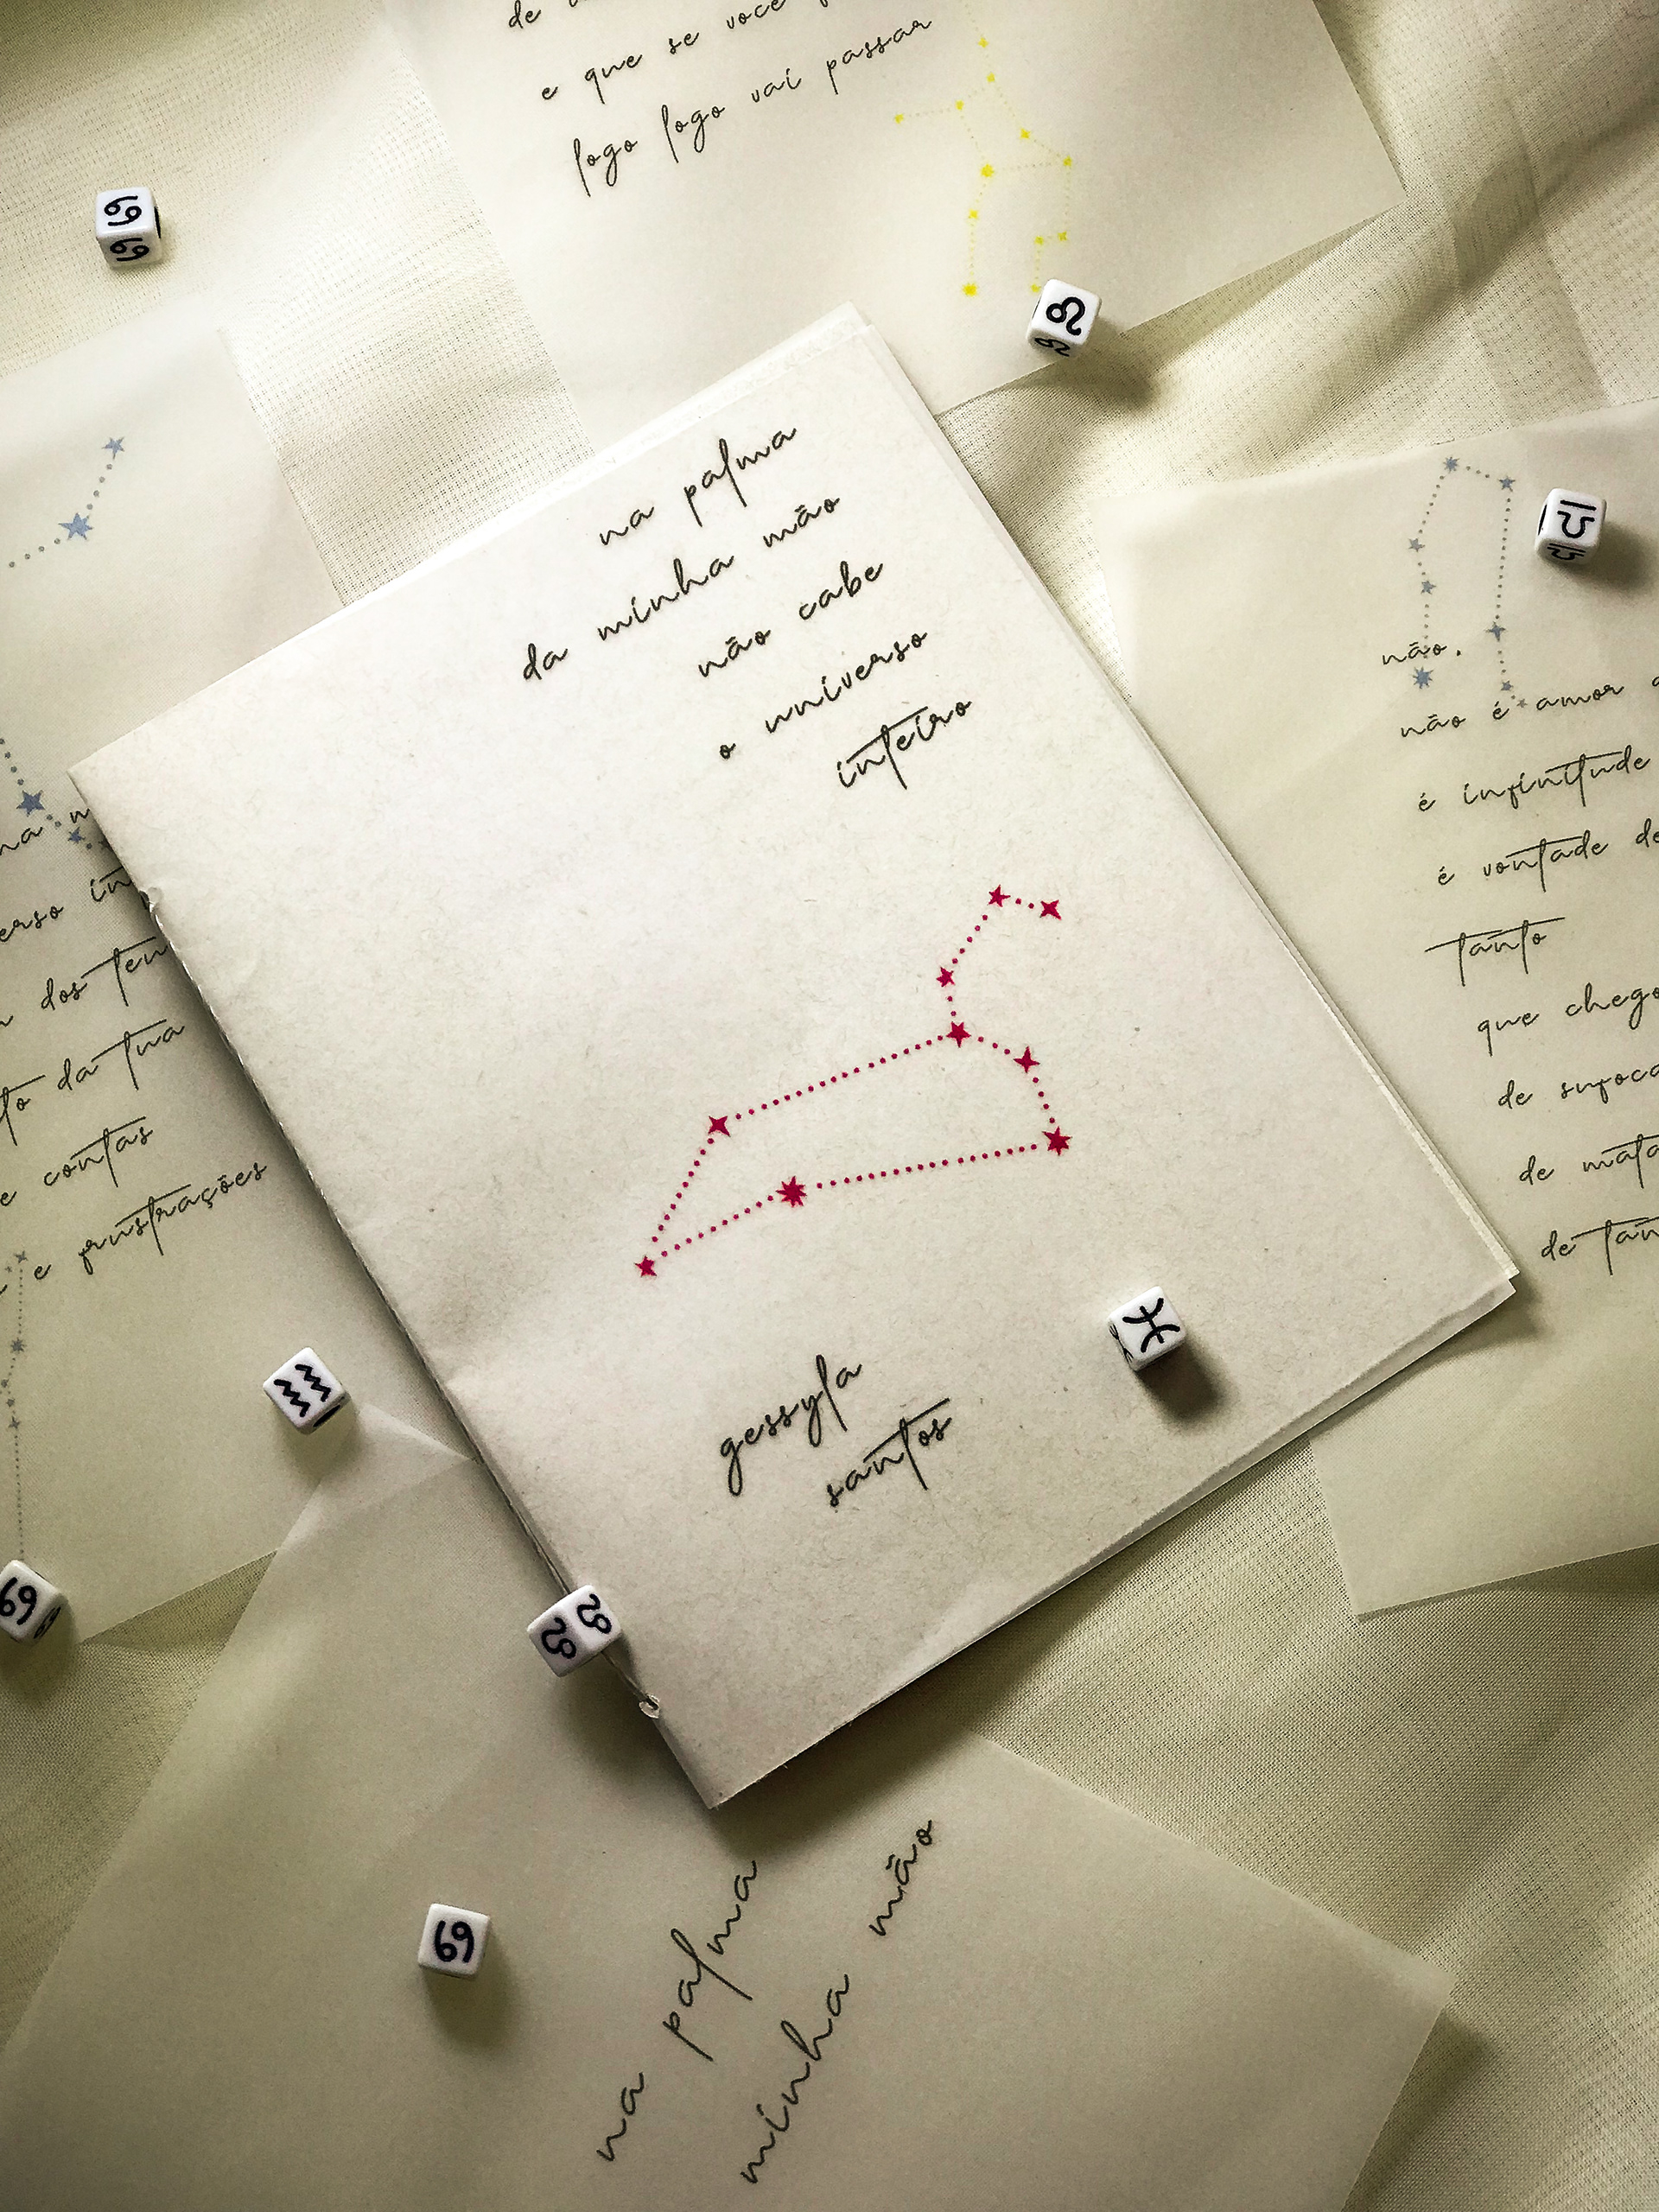 e que se você
logo logo vai passar
na palma
da minha mão
não cabe
o universo
inteiro
gessyla
santos
não.
não é amor
é infinitude
é vontade de
tanto
que
de
de
de
dos
da tua
contas
e frustrações
na palma
minha mão